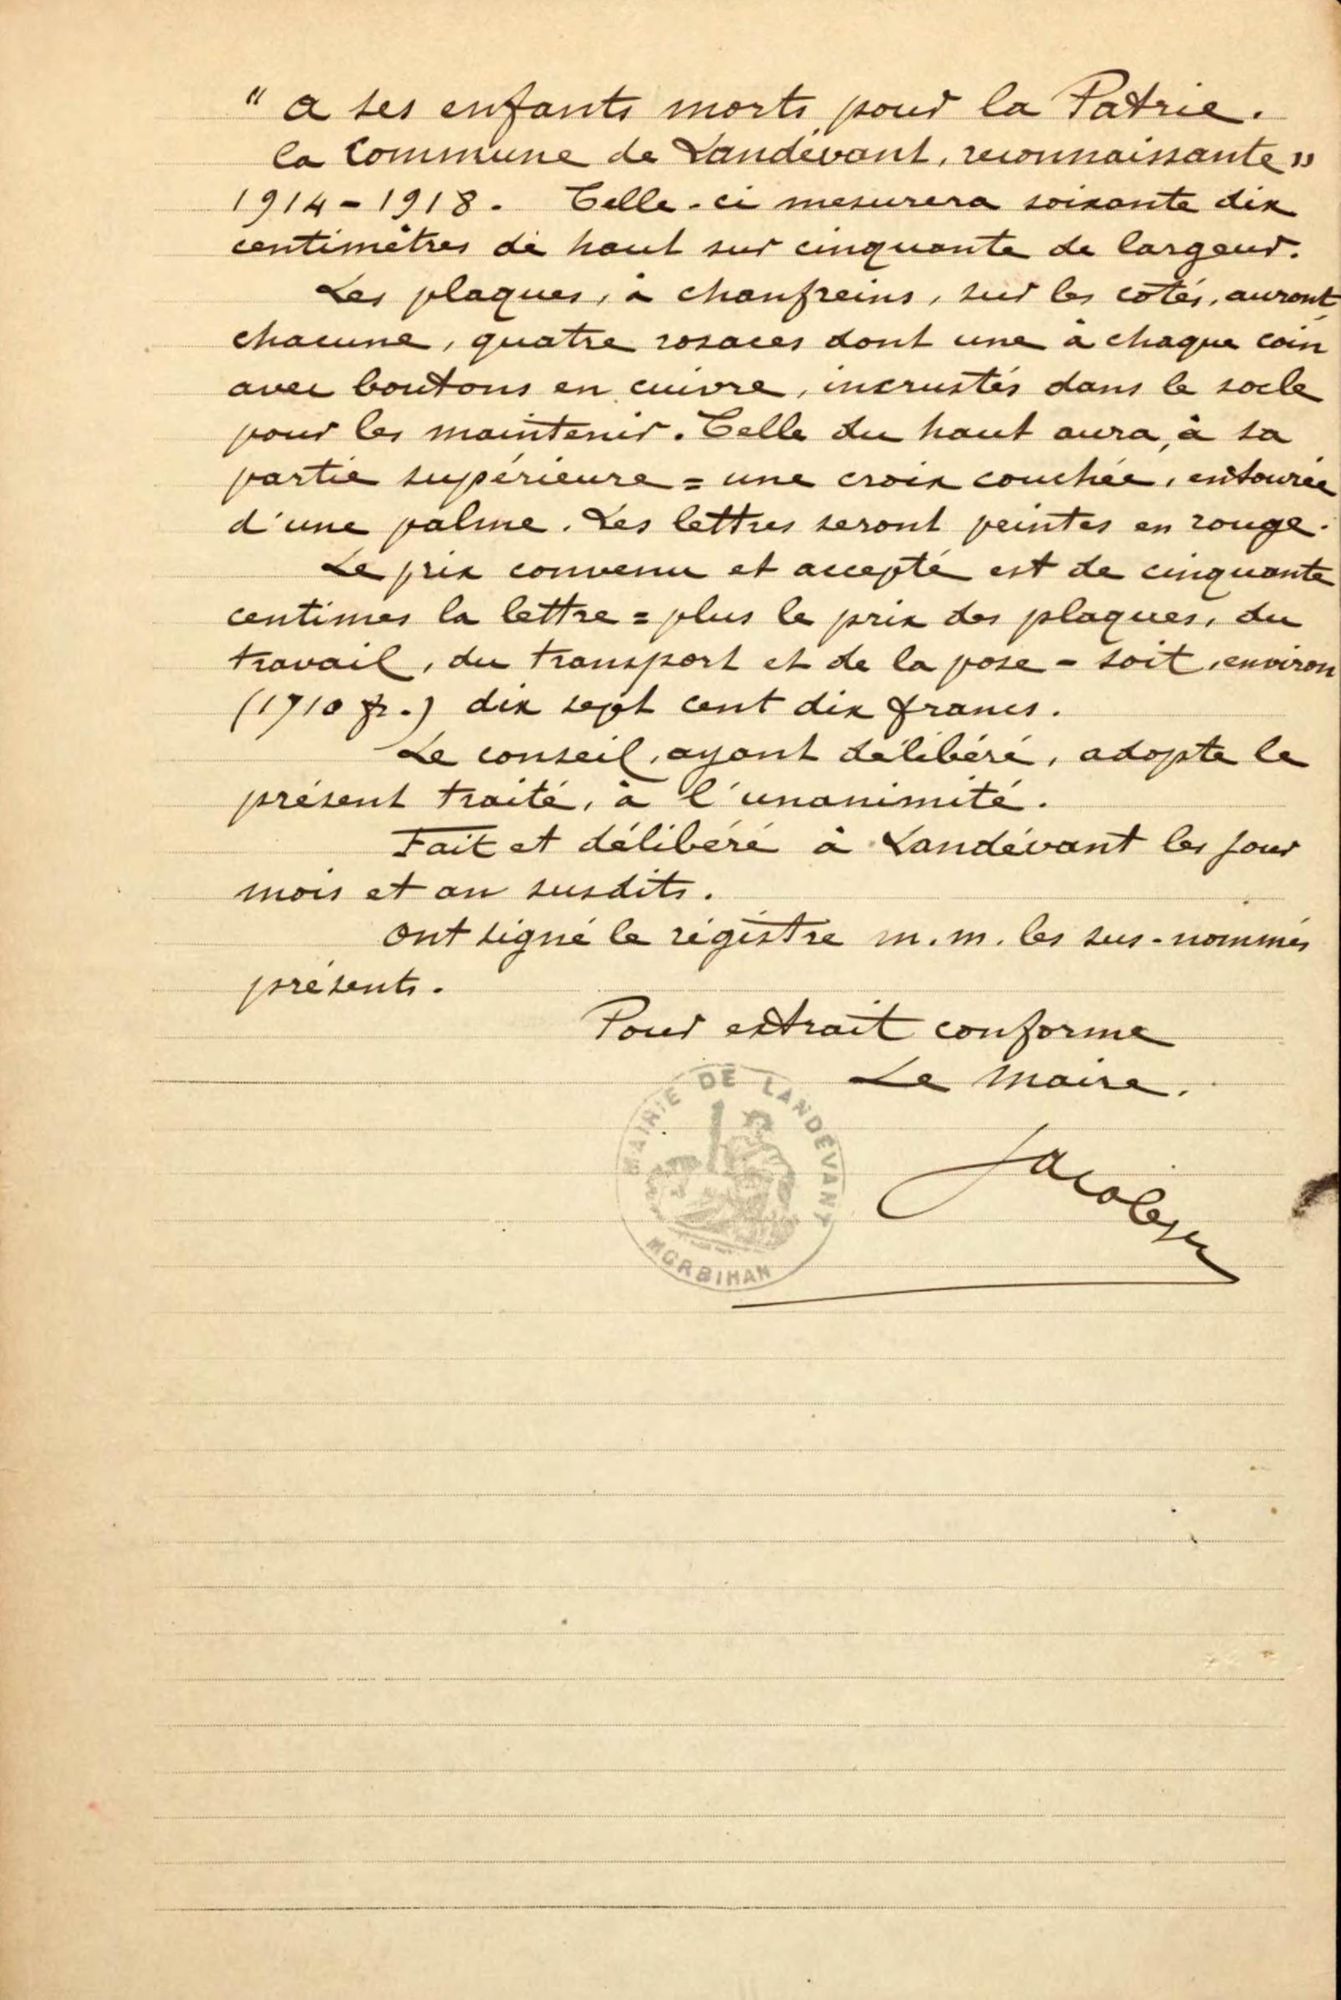 " a ses enfants morts pour la Patrie.
la Commune de Landévant, reconnaissante "
1914 - 1918. Celle-ci mesurera soixante dix
centimètres de haut sur cinquante de largeur.
Les plaques, à chanfreins, sur les côtés, auront
chacune, quatre rosaces dont une à chaque coin
avec boutons en cuivre, incrustés dans le socle
pour les maintenir. Celle du haut aura, à sa
partie supérieure = une croix couchée, entourée
d'une palme. Les lettres seront peintes en rouge.
Le prix convenu et accepté est de cinquante
centimes la lettre = plus le prix des plaques, du
travail, du transport et de la pose - soit, environ
(1710 fr.) dix sept cent dix francs.
Le conseil, ayant délibéré, adopte le
présent traité, à l'unanimité.
Fait et délibéré à Landévant les jour
mois et an susdits.
Ont signé le régistre m.m. les sus-nommés
présents.
Pour extrait conforme
Le Maire.
MAIRIE DE LANDEVANT
MORBIHAN